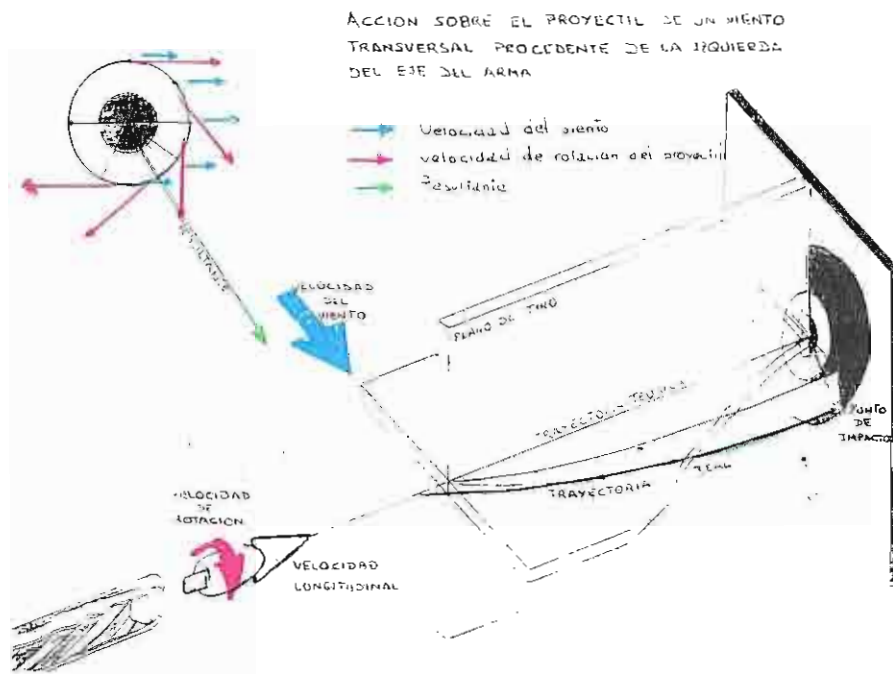 ACCION SOBRE EL PROYECTIL DE UN VIENTO
TRANSVERSAL PROCEDENTE DE LA IZQUIERDA
DEL EJE DEL ARMA
Velocidad del viento
velocidad de rotacion del proyectil
Resultante
RESULTANTE
VELOCIDAD
DEL
VIENTO
PLANO DE TIRO
TRAYECTORIA TEORICA
PUNTO
DE
IMPACTO
TRAYECTORIA REAL
VELOCIDAD
DE
ROTACION
VELOCIDAD
LONGITUDINAL